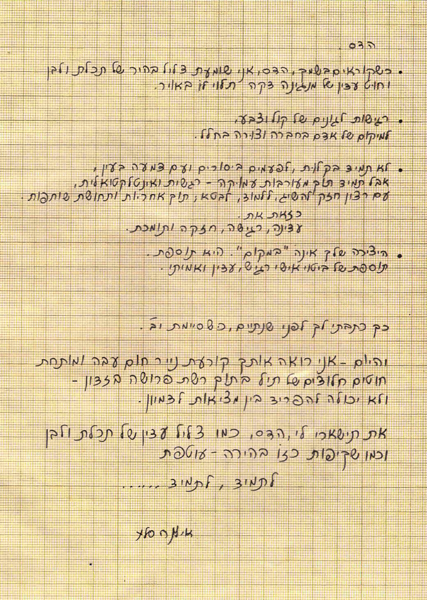 הדס.
• כשקוראים בשמך, הדס, אני שומעת צליל בהיר של תכלת ולבן
וחוט עדין של מנגינה דקה תלוי לו באויר.
• רגישות לגוונים של קול וצבע,
למיקום של אדם בחברה וצורה בחלל.
• לא תמיד בקלות, לפעמים ביסורים ועם דמעה בעין,
אבל תמיד תוך מעורבות עמוקה - רגשית ואינטלקטואלית,
עם רצון חזק להשיג, ללמוד, לבטא, תוך אחריות ותחושת שותפות.
כזאת את.
עדינה, רגישה, חזקה ותומכת.
• היצירה שלך אינה "במקום". היא תוספת.
תוספת של ביטוי אישי רגיש, עדין ואמיתי.
כך כתבתי לך לפני שנתיים, כשסיימת יב'.
והיום - אני רואה אותך קורעת נייר חום עבה ומותחת
חוטים חלודים של תיל בתוך רשת פרושה בזדון -
ולא יכולה להפריד בין מציאות לדמיון.
את תישארי לי, הדס, כמו צליל עדין של תכלת ולבן
וכמו שקיפות כזו בהירה - עוטפת
לתמיד, לתמיד ......
סלע